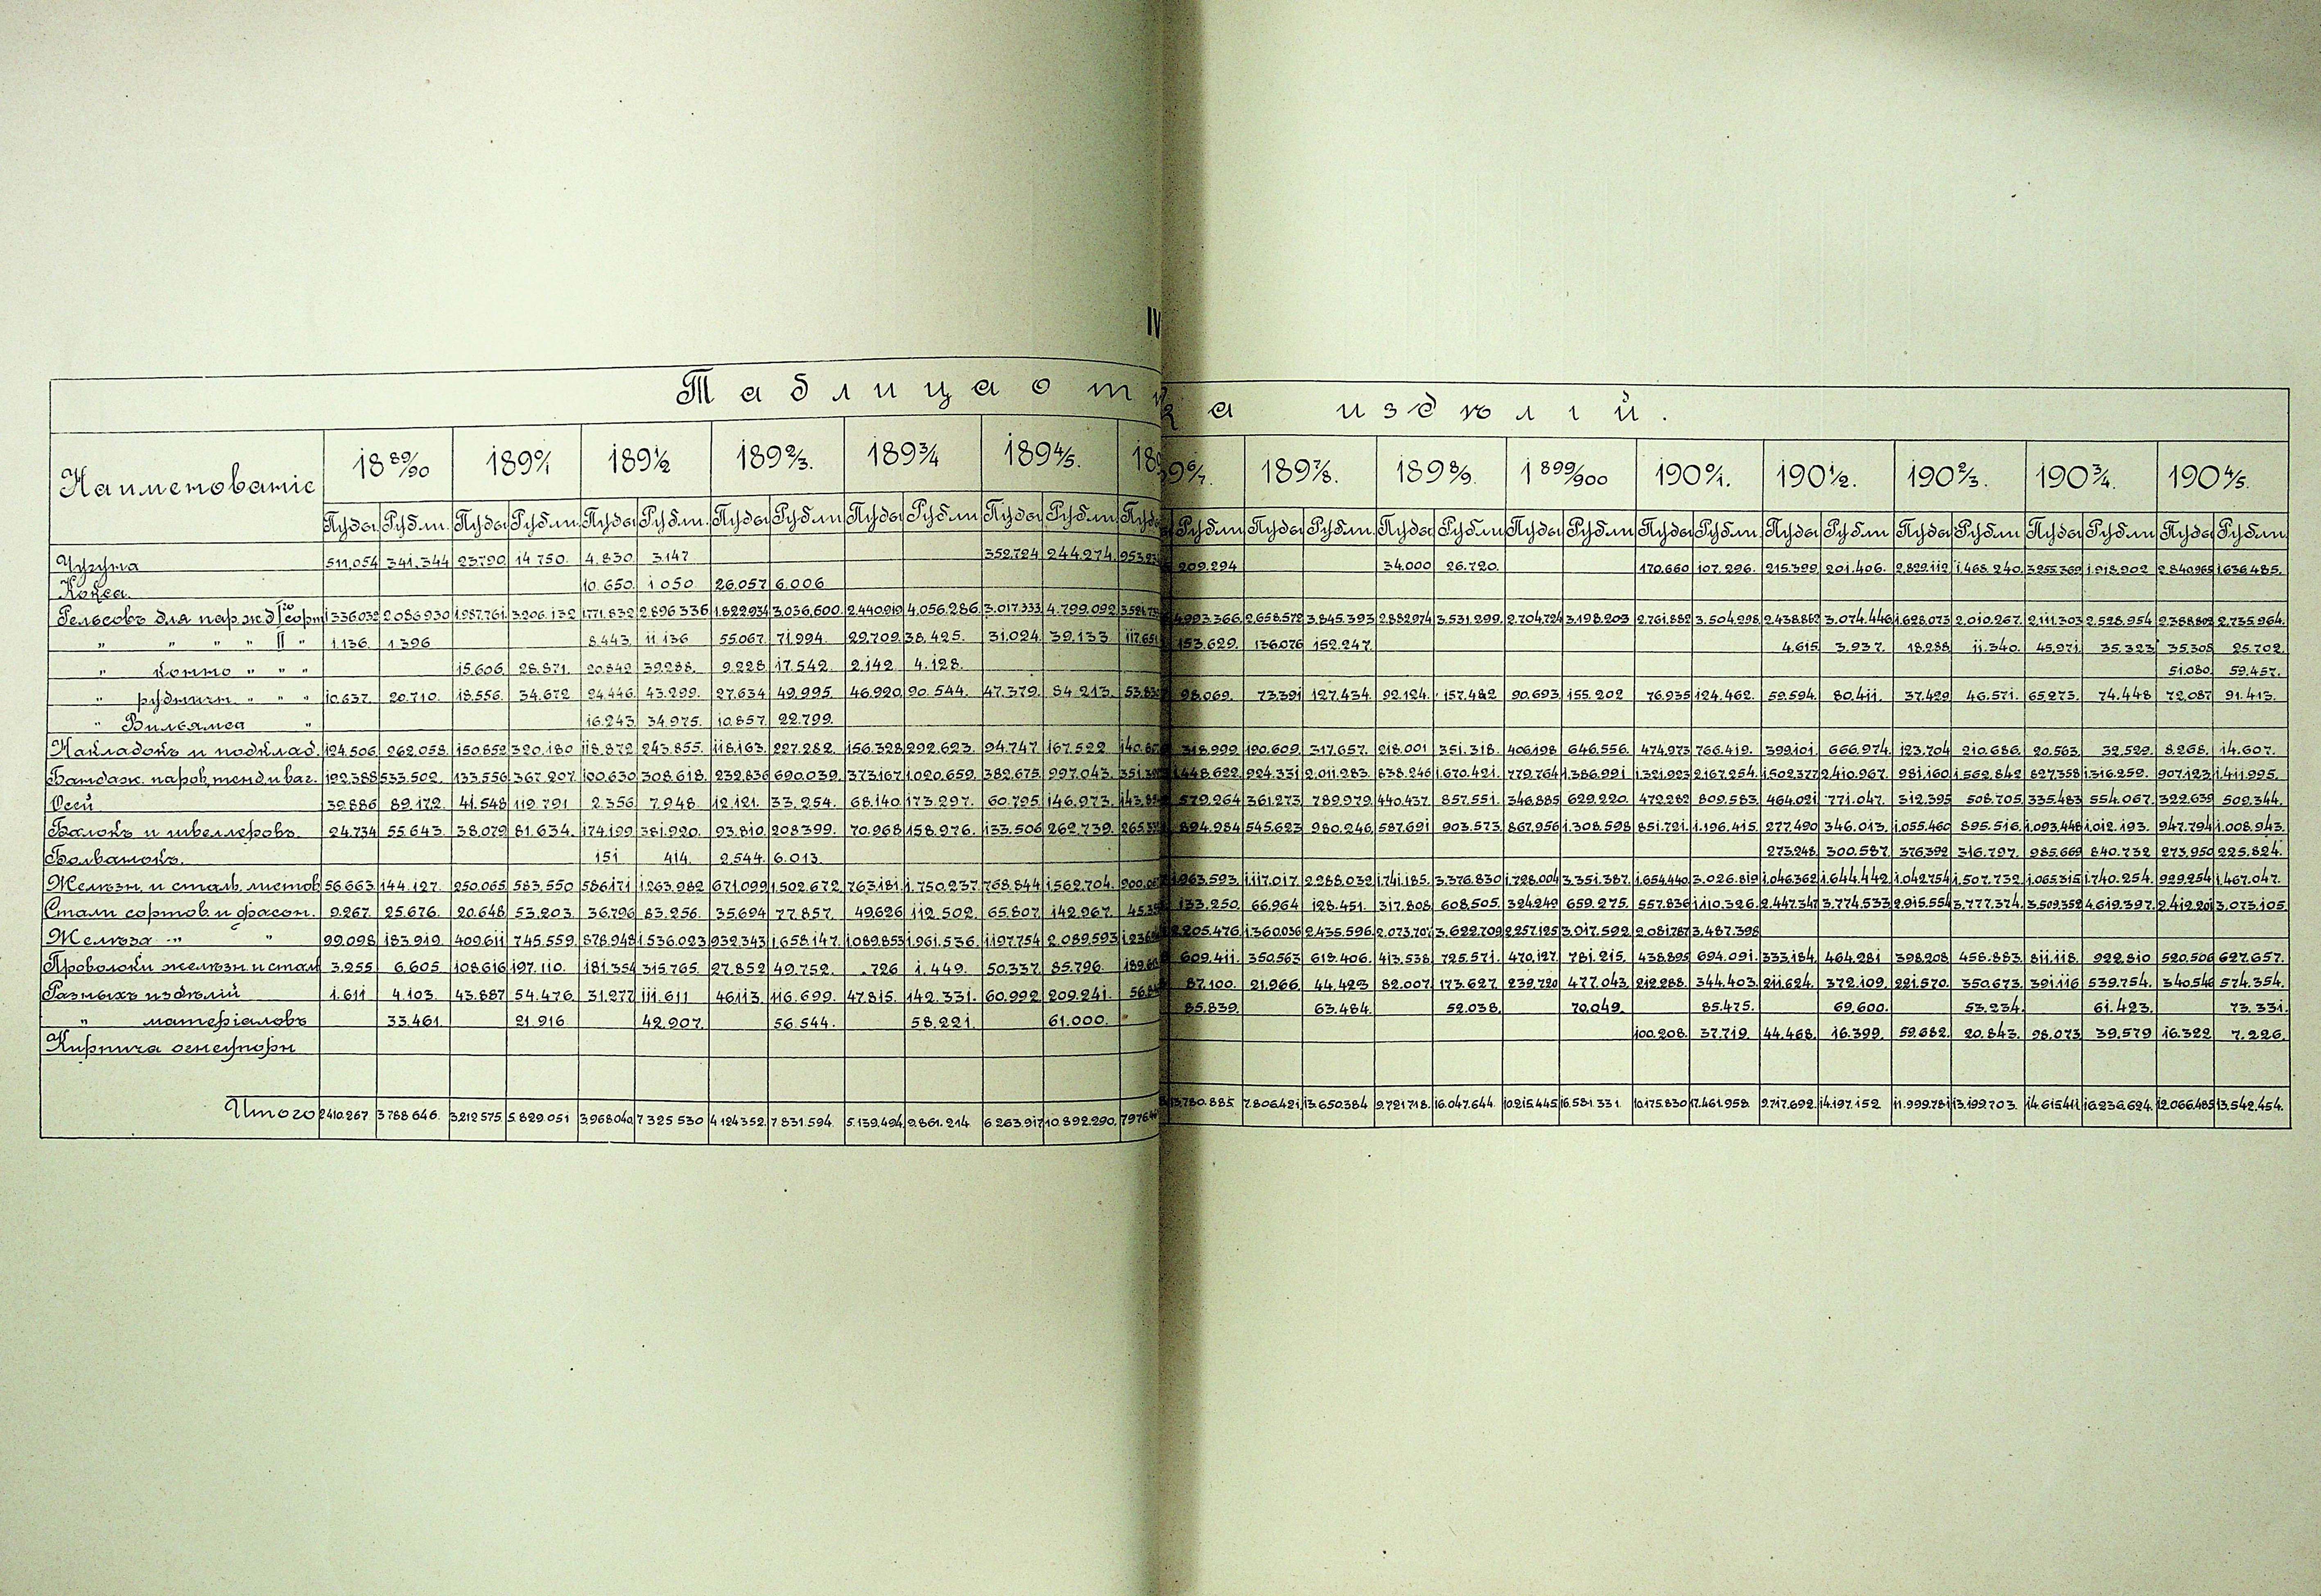 IV
Таблица от ка издѣлій.
Наименованіе 18 89/90 189 0/1 189 1/2 189 2/3. 189 3/4 189 4/5. 189 9 6/7. 189 7/8. 189 8/9. 1 899/900 190 0/1. 190 1/2. 190 2/3. 190 3/4. 190 4/5.
Пуды Рубли. Пуды Рубли. Пуды Рубли. Пуды Рубли Пуды Рубли Пуды Рубли. Пуды Рубли Пуды Рубли. Пуды Рубли Пуды Рубли Пуды Рубли. Пуды Рубли Пуды Рубли. Пуды Рубли Пуды Рубли
Чугуна 511,054 341.344 23790 14 750. 4.830 3.147 352.724 244.274. 209.294 34.000 26.720. 170.660 107.296. 215.399 201.406. 2.829.112 1.468.240. 3.255.369 1.918.902 2.840.965 1.636.485.
Кокса. 10 650. 1 050 26.057 6.006
Рельсовъ для пар.ж.д Iго сорт 1336.032 2.086930 1.987.761. 3.206.132 1.771.832 2.896.336 1.822.934 3.036.600. 2.440.919 4.056.286. 3.017.333 4.799.092 4.993.366. 2.658.572 3.845.393 2.882974 3.531.299. 2.704.724 3.198.203 2.761.882 3.504.298. 2.438.862 3.074.446 1.628.073 2.010.267. 2.111.303 2.528.954 2.388.802 2.735.964.
" " " " II " 1.136. 1 396 8.443. 11 136 55.067. 71.994. 29.709. 38.425. 31.024. 39.133. 153.629. 136.076 152.247. 4.615 3.937. 18.288 11.340. 45.971. 35.323 35.308 25.702.
" конно " " " 15.606 28.871. 20.842 39288. 9.228 17.542. 2.142. 4.128. 51.080. 59.457.
" рудничн. " " " 10.637. 20.710. 18.556. 34.672 24.446. 43.299. 27.634 49.995. 46.920 90.544. 47.379. 84.213. 98.069. 73.391 127.434. 92.124. 157.482 90.693 155.202 76.935 124.462. 59.594. 80.411. 37.429 46.571. 65.273. 74.448 72.087 91.413.
" Вильямса " 16.243 34.975. 10.857. 22.799.
Накладокъ и подклад. 124.506. 262.058. 150.852 320.180 118.872 243.855. 118.163. 227.282. 156.328 292.623. 94.747 167.522 318.999. 120.609. 317.657. 218.001 351.318. 406.198 646.556. 474.973 766.419. 399.101 666.974. 123.704 210.686. 20.563. 32.529. 8.268. 14.607.
Бандаж. паров, тенд. и ваг. 192.388 533.502. 133.556 367.207. 100.630 308.618. 232.836 690.039. 373.167 1.020.659. 382.675. 997.043. 1.448.622. 924.331 2.011.283. 838.246 1.670.421. 779.764 1.386.991 1.321.923 2.167.254. 1.502.377 2.410.967. 981.160 1.562.842 827.358 1.316.259. 907.123 1.411.995.
Осей 39.886 89.172. 41.548 119.791 2.356 7.948 12.121. 33.254. 68.140 173.297. 60.795 146.973. 579.264 361.273 789.979. 440.437. 857.551. 346.885 629.220. 472.282 809.583. 464.021 771.047. 312.395 508.705. 335.483 554.067. 322.639 509.344.
Балокъ и швеллеровъ. 24.734 55.643. 38.079 81.634. 174.199 381.920. 93.810 208399. 70.968 158.976. 133.506 262.739. 894.984 545.623 980.246. 587.691 903.573. 867.956 1.308.598 851.721. 1.196.415. 277.490 346.013. 1.055.460 895.516. 1.093.448 1.012.193. 947.794 1.008.943.
Болванокъ. 151 414. 2.544. 6.013. 273.248. 300.587. 376.392 316.797. 985.669 840.732 273.950 225.824.
Желѣзн. и сталь. листов. 56.663 144.127. 250.065. 583.550 586.171 1.263.982 671.099 1.502.672. 763.181. 1.750.237. 768.844 1.562.704. 1.963.593. 1.117.017. 2.288.032 1.741.185. 3.376.830 1.728.004 3.351.387. 1.654.440 3.026.819 1.046.362 1.644.442. 1.042.754 1.507.732. 1.065.315 1.740.254. 929.254 1.467.047.
Стали сортов. и фасон. 9.267. 25.676. 20.648 53.203. 36.796 83.256. 35.694 77.857. 49.626 112.502. 65.807. 142.967. 133.250. 66.964 128.451. 317.808 608.505. 324.249 659.275. 557.836 1.110.326. 2.447.347 3.774.533 2.915.554 3.777.374. 3.509.352 4.619.397. 2.412.201 3.073.105.
Желѣза " " 99.098. 183.919. 409.611 745.559. 878.948 1.536.023 932.343 1.658.147. 1.089.853 1.961.536. 1.197.754 2.089.593 2.205.476. 1.360.036 2.435.596. 2.073.707. 3.622.709 2.257.125 3.917.592. 2.081.787 3.487.398
Проволоки желѣзн. и стал 3.255 6.605 108.616 197.110. 181.354 315.765. 27.852 49.752. .726 1.449. 50.337. 85.796. 609.411. 350.563 618.406. 413.538 725.571. 470.127. 781.215. 438.895 694.091. 333.184. 464.281 398.208 458.883. 811.118. 922.810 520.506 627.657.
Разныхъ издѣлій 1.611 4.103. 43.887 54.476. 31.277 111.611 46113. 116.699. 47.815. 142.331. 60.992 209.241. 87.100. 21.966. 44.423 82.007. 173.627. 239.720 477.043. 212.288. 344.403. 211.624. 372.109. 221.570. 350.673. 391.116 539.754. 340.546 574.354.
" матеріаловъ 33.461. 21.916 42.907. 56.544. 58.221. 61.000. 85.839. 63.484. 52.038. 70.049. 85.475. 69.600. 53.234. 61.423. 73.331.
Кирпича огнеупорн 100.208. 37.719. 44.468. 16.399. 59.682. 20.843. 98.073 39.579 16.322 7.226.
Итого 2410.267 3 788 646. 3.212 575. 5.829.051 3.968.040. 7 325 530 4 124 352. 7 831.594. 5.139.494. 9.861.214 6 263.917 10.892.290. 13.780.885. 7.806.421 13.650.384 9.721.718. 16.047.644. 10.215.445 16.581.331. 10.175.830 17.461.958. 9.717.692. 14.197.152 11.999.781 13.199.703. 14.615.411 16.236.624. 12.066.485 13.542.454.